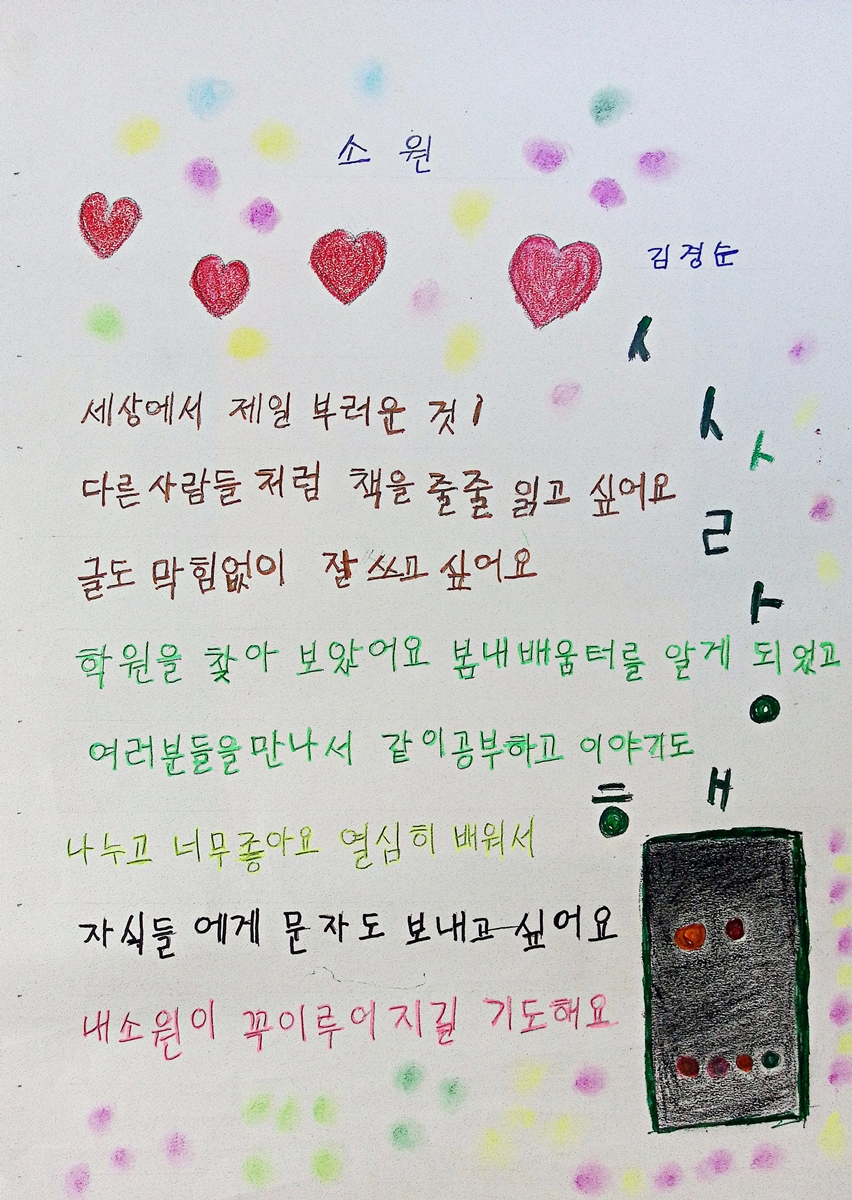 소 원
김경순
세상에서 제일 부러운 것!
다른 사람들 처럼 책을 줄줄 읽고 싶어요
글도 막힘없이 잘 쓰고 싶어요
학원을 찾아 보았어요 봄내배움터를 알게 되었고
여러분들을만나서 같이공부하고 이야기도
나누고 너무좋아요 열심히 배워서
자식들 에게 문자도 보내고 싶어요
내소원이 꼭이루어지길 기도해요
사랑해